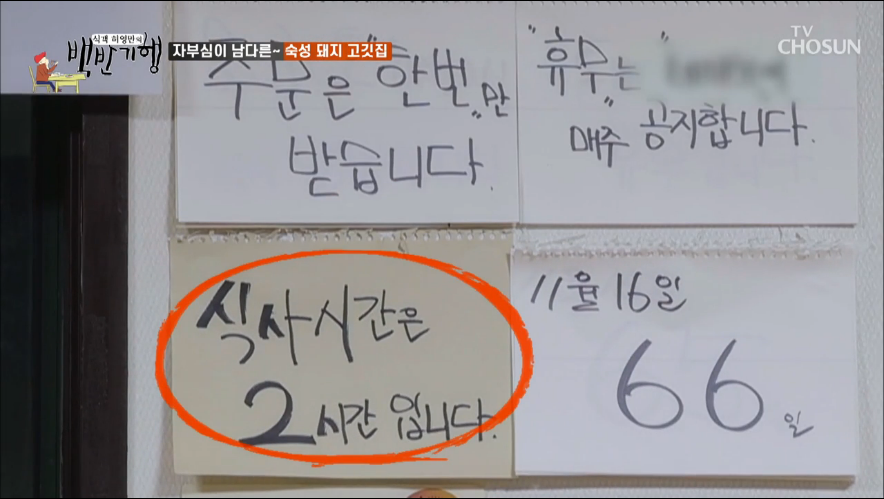 식객 허영만의
백반기행
자부심이 남다른~ 숙성 돼지 고깃집
TV
CHOSUN
주문은 "한번"만
받습니다.
"휴무는"
매주 공지합니다.
식사시간은
2시간 입니다.
11월 16일
66일